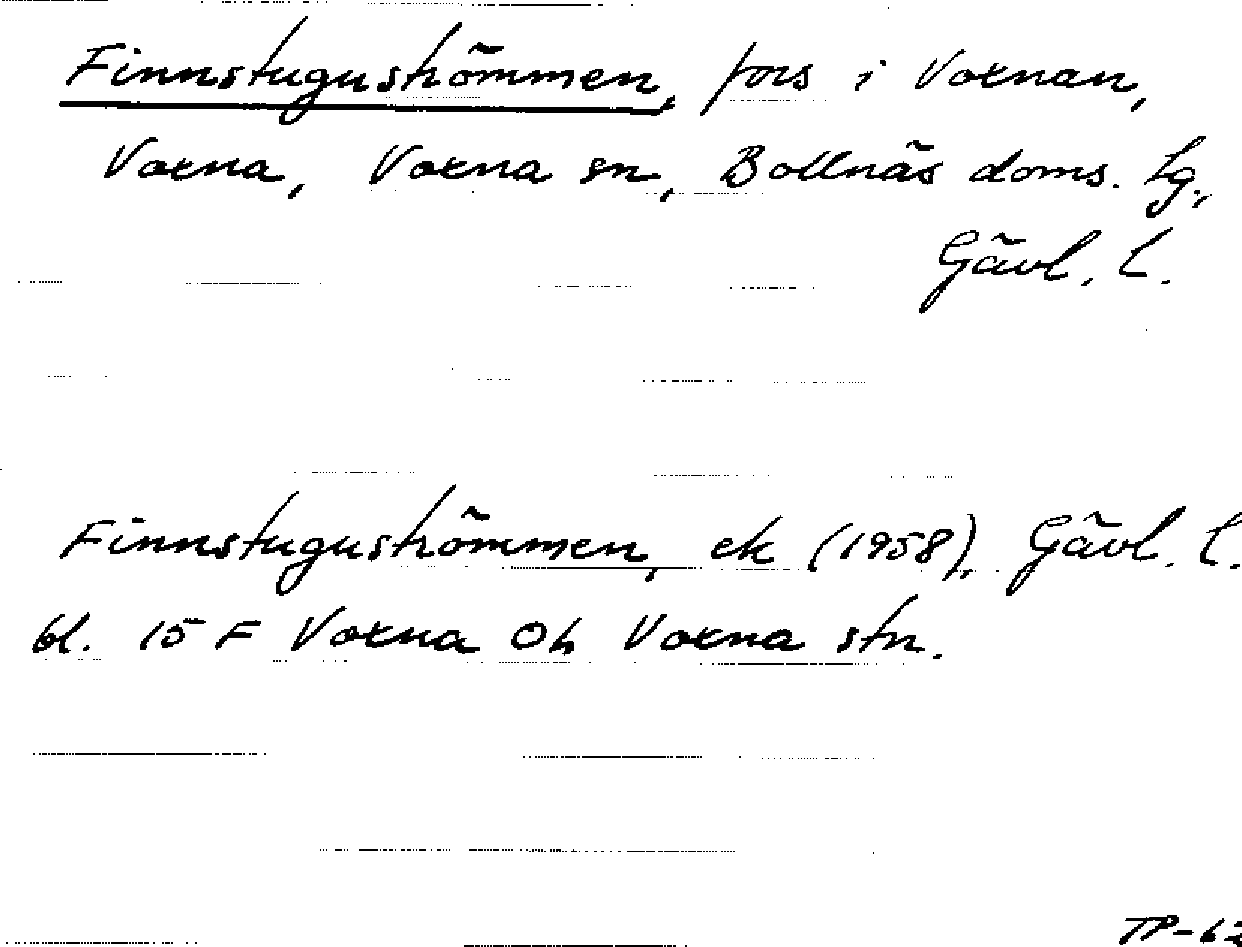 Finnstuguströmmen, fors i Voxnan,
Voxna, Voxna sn, Bollnäs doms. lg.,
Gävl. l.
Finnstuguströmmen, ek (1958), Gävl. l.
bl. 15 F Voxna 0h Voxna stn.
TP-62